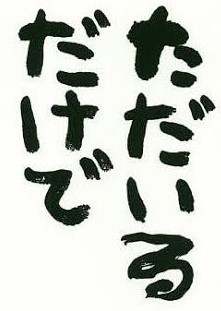 ただいる
だけで